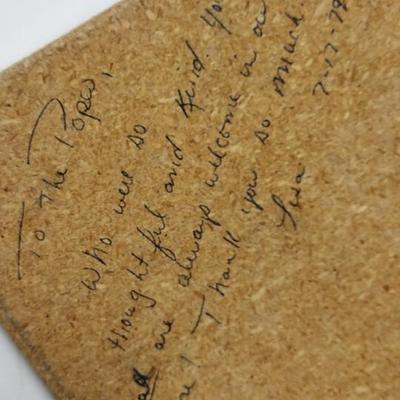 To The Popes,
Who were so
thoughtful and kind. Yo
all are always welcome in ou
Thank you so much.
Lisa
7-17-79